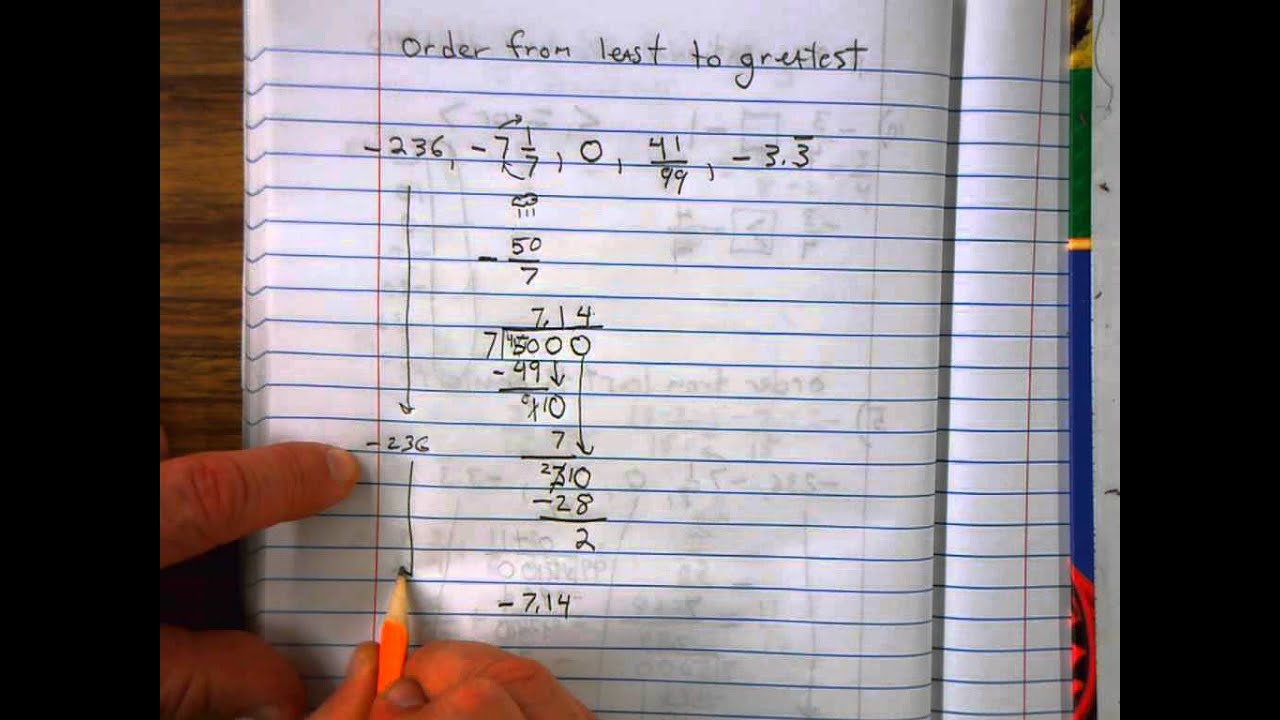 Order from least to greatest
-236, -7 1/7, 0, 41/99, -3.3̅
- 50/7
7.14
7 5000
- 49
10
-236 7
10
-28
2
-7.14